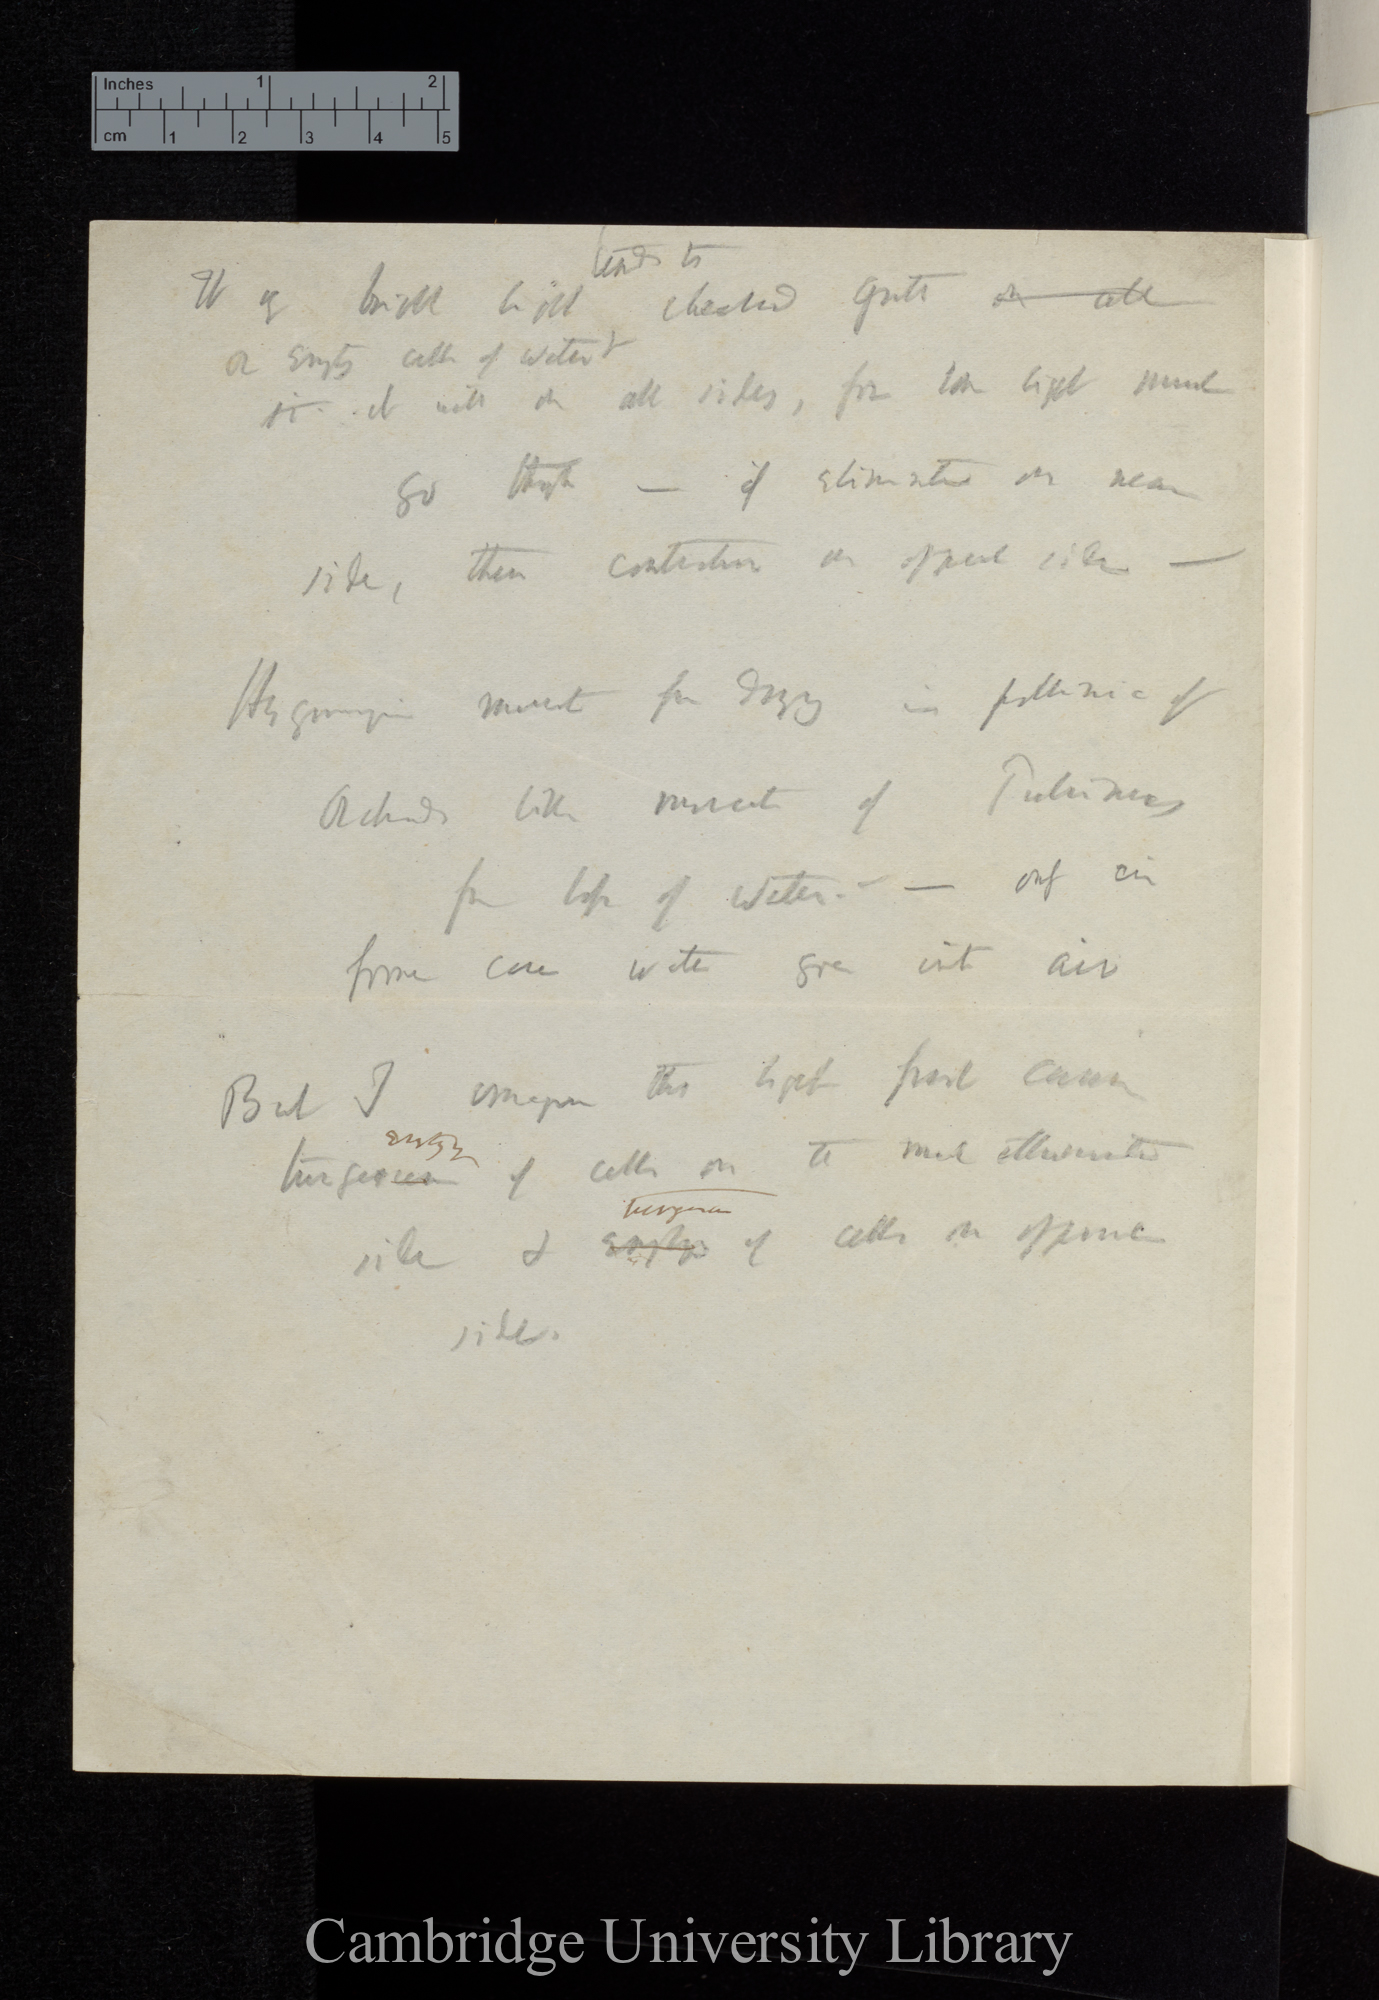 Inches 1 2
cm 1 2 3 4 5
tends to
If bright light checked growth on all
or empty cells of water &
it will on all sides, for the light must
go through — if eliminated on near
side, then contraction on opposite side —
movement from drying in pollinia of
Orchids like movement of Pulvinus
from loss of water — only in
former case water goes into air
But I imagine this light first causes
empty
turgescence of cells on the most illuminated
turgescence
side & emptying of cells on opposite
sides.
Cambridge University Library